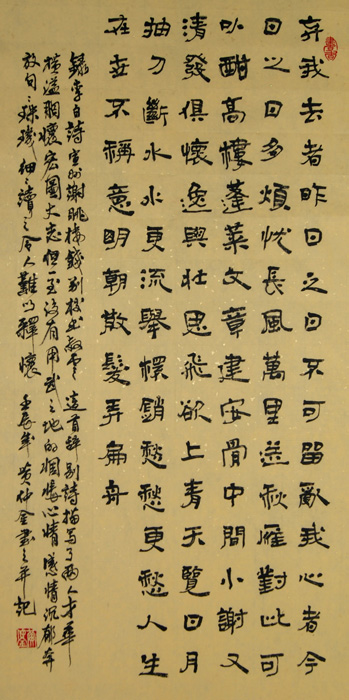 弃我去者昨日之日不可留亂我心者今
日之日多煩忧長風萬里送秋雁對此可
以酣高樓蓬莱文章建安骨中間小謝又
清發俱懷逸興壮思飛欲上青天覽日月
抽刀斷水水更流舉杯銷愁愁更愁人生
在世不稱意明朝散髮弄扁舟
錄李白詩宣州謝朓樓餞别校书叔雲這首餞别詩描写了两人才華
横溢胸懷宏圖大志但一至没有用武之地的惆悵心情感情沉郁奔
放句句珠璣细细讀之令人難以釋懷 壬辰年黄仲金書并記